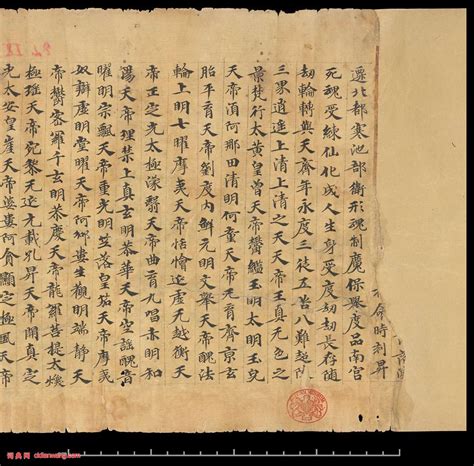 不命時刻昇
遷北都寒池部衛形魂制魔保舉度品南宮
死魂受練仙化成人生身受度劫劫長存隨
劫輪轉與天齊年永度三徒五苦八難超
三界逍遥上清上清之天天帝玉真无色之
景梵行太黄皇曾天帝鬱鑑玉明太明玉
天帝湏阿那田清明何童天帝元育齊京玄
胎平育天帝劉度内鮮元明文舉天帝醜法
輪上明七曜摩夷天帝恬懀延虚无越衡天
帝正定光太極濛翳天帝曲育九唱赤明和
陽天帝理禁上真玄明恭華天帝空謡醜音
曜明宗飄天帝重光明笁落皇茄天帝摩羙
奴辯虚明堂曜天帝阿婁生觀明端静天
帝鬱密羅千玄明恭慶天帝龍羅菩提太煥
極瑶天帝宛黎无延无載孔昇天帝開真定
光太安皇崖天帝婆婁阿貪顯定極風天帝
词典网 cidianwang.com